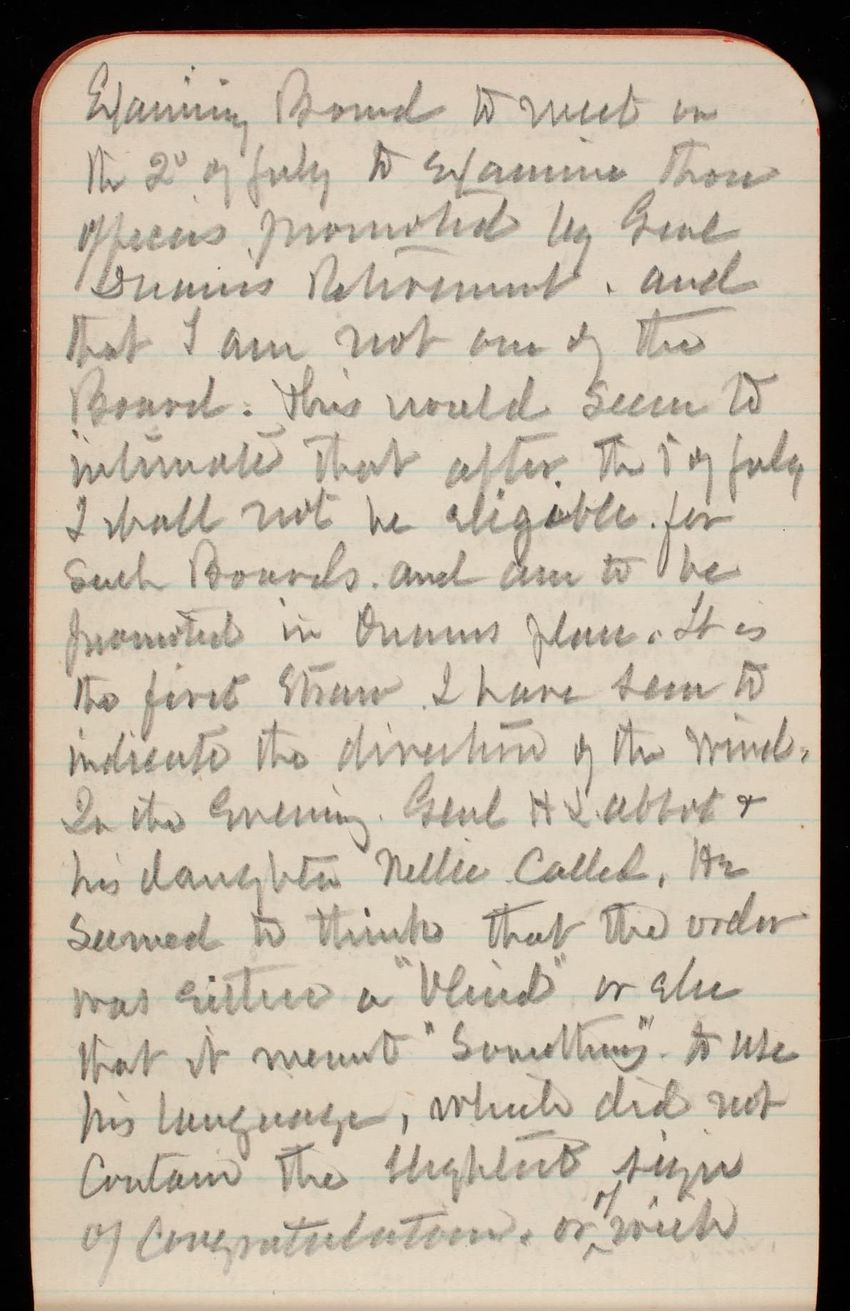 Examining Board to meet on
the 2d of July to examine those
officers promoted by Genl
Duane's Retirement. and
that I am not one of the
Board. This would seem to
intimate that after the 1 of July
I shall not be eligible for
such Boards. and am to be
promoted in Duanes place. It is
the first straw I have seen to
indicate the direction of the wind.
In the evening. Genl H L Abbot &
his daughter Nellie Called. He
seemed to think that the order
was either a "blind" or else
that it meant "Something". to use
his language, which did not
contain the slightest sign
of congratulation. or of wish